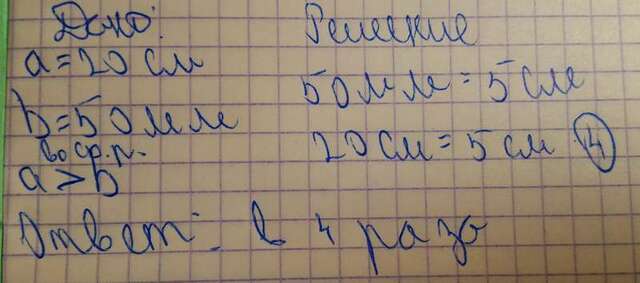 Дано: Решение
a = 20 см
50 мм = 5 см
b = 50 мм
во ск. р.
20 см = 5 см 4
a > b
Ответ: в 4 раза